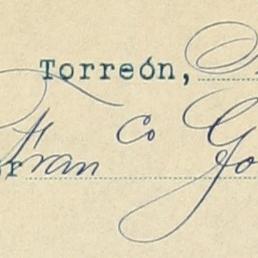 Torreón,
Fran co Go